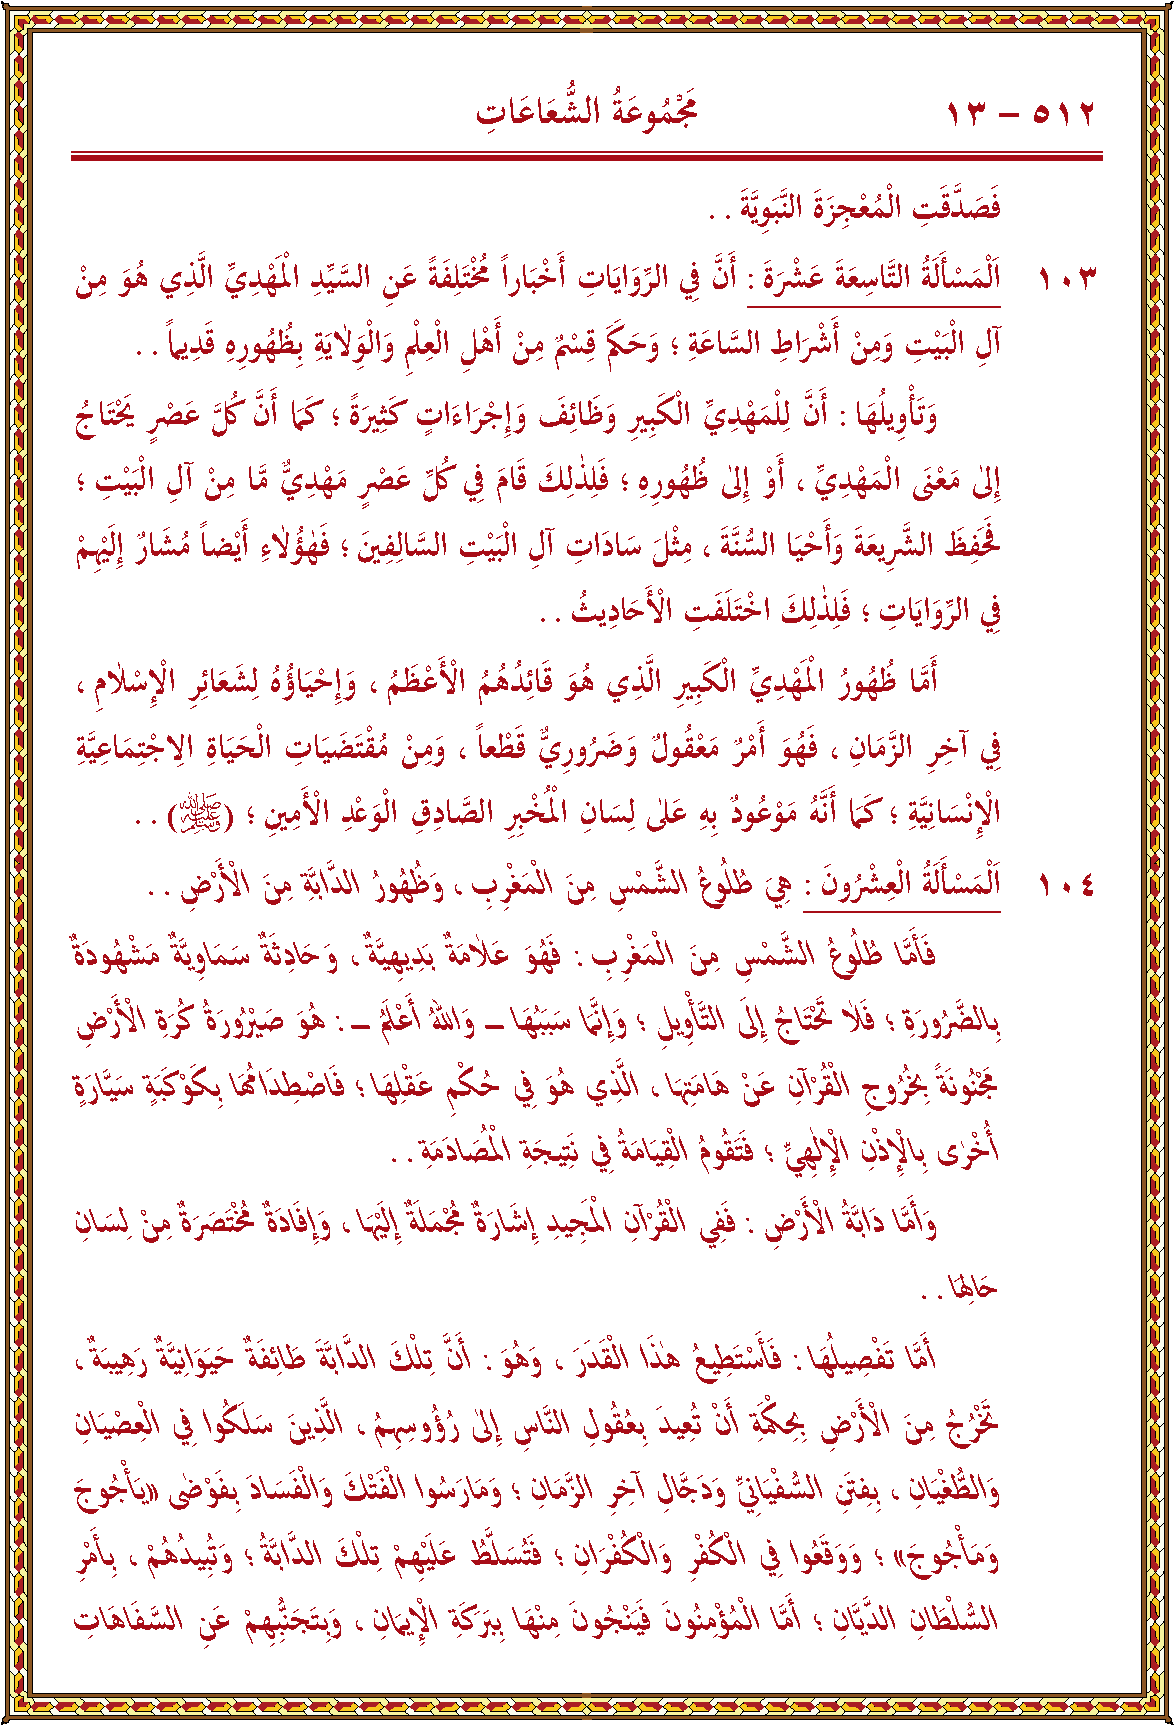 ٥١٢ – ١٣ مَجْمُوعَةُ الشُّعَاعَاتِ
فَصَدَّقَتِ الْمُعْجِزَةَ النَّبَوِيَّةَ . .
١٠٣ اَلْمَسْأَلَةُ التَّاسِعَةَ عَشْرَةَ : أَنَّ فِي الرِّوَايَاتِ أَخْبَاراً مُخْتَلِفَةً عَنِ السَّيِّدِ الْمَهْدِيِّ الَّذِي هُوَ مِنْ
آلِ الْبَيْتِ وَمِنْ أَشْرَاطِ السَّاعَةِ ؛ وَحَكَمَ قِسْمٌ مِنْ أَهْلِ الْعِلْمِ وَالْوَِلاٰيَةِ بِظُهُورِهِ قَدِيماً . .
وَتَأْوِيلُهَا : أَنَّ لِلْمَهْدِيِّ الْكَبِيرِ وَظَائِفَ وَإِجْرَاءَاتٍ كَثِيرَةً ؛ كَمَا أَنَّ كُلَّ عَصْرٍ يَحْتَاجُ
إِلىٰ مَعْنَى الْمَهْدِيِّ ، أَوْ إِلىٰ ظُهُورِهِ ؛ فَلِذٰلِكَ قَامَ فِي كُلِّ عَصْرٍ مَهْدِيٌّ مَّا مِنْ آلِ الْبَيْتِ ؛
فَحَفِظَ الشَّرِيعَةَ وَأَحْيَا السُّنَّةَ ، مِثْلَ سَادَاتِ آلِ الْبَيْتِ السَّالِفِينَ ؛ فَهٰؤُلاٰءِ أَيْضاً مُشَارٌ إِلَيْهِمْ
فِي الرِّوَايَاتِ ؛ فَلِذٰلِكَ اخْتَلَفَتِ الْأَحَادِيثُ . .
أَمَّا ظُهُورُ الْمَهْدِيِّ الْكَبِيرِ الَّذِي هُوَ قَائِدُهُمُ الْأَعْظَمُ ، وَإِحْيَاؤُهُ لِشَعَائِرِ الْإِسْلاٰمِ ،
فِي آخِرِ الزَّمَانِ ، فَهُوَ أَمْرٌ مَعْقُولٌ وَضَرُورِيٌّ قَطْعاً ، وَمِنْ مُقْتَضَيَاتِ الْحَيَاةِ الِاجْتِمَاعِيَّةِ
الْإِنْسَانِيَّةِ ؛ كَمَا أَنَّهُ مَوْعُودٌ بِهِ عَلىٰ لِسَانِ الْمُخْبِرِ الصَّادِقِ الْوَعْدِ الْأَمِينِ ؛ (ﷺ) . .
١٠٤ اَلْمَسْأَلَةُ الْعِشْرُونَ : هِيَ طُلُوعُ الشَّمْسِ مِنَ الْمَغْرِبِ ، وَظُهُورُ الدَّابَّةِ مِنَ الْأَرْضِ . .
فَأَمَّا طُلُوعُ الشَّمْسِ مِنَ الْمَغْرِبِ : فَهُوَ عَلاٰمَةٌ بَدِيهِيَّةٌ ، وَحَادِثَةٌ سَمَاوِيَّةٌ مَشْهُودَةٌ
بِالضَّرُورَةِ ؛ فَلاٰ تَحْتَاجُ إِلَى التَّأْوِيلِ ؛ وَإِنَّمَا سَبَبُهَا – وَاللهُ أَعْلَمُ – : هُوَ صَيْرُورَةُ كُرَةِ الْأَرْضِ
مَجْنُونَةً بِخُرُوجِ الْقُرْآنِ عَنْ هَامَتِهَا ، الَّذِي هُوَ فِي حُكْمِ عَقْلِهَا ؛ فَاصْطِدَامُهَا بِكَوْكَبَةٍ سَيَّارَةٍ
أُخْرٰى بِالْإِذْنِ الْإِلٰهِيِّ ؛ فَتَقُومُ الْقِيَامَةُ فِي نَتِيجَةِ الْمُصَادَمَةِ . .
وَأَمَّا دَابَّةُ الْأَرْضِ : فَفِي الْقُرْآنِ الْمَجِيدِ إِشَارَةٌ مُجْمَلَةٌ إِلَيْهَا ، وَإِفَادَةٌ مُخْتَصَرَةٌ مِنْ لِسَانِ
حَالِهَا . .
أَمَّا تَفْصِيلُهَا : فَأَسْتَطِيعُ هٰذَا الْقَدَرَ ، وَهُوَ : أَنَّ تِلْكَ الدَّابَّةَ طَائِفَةٌ حَيَوَانِيَّةٌ رَهِيبَةٌ ،
تَخْرُجُ مِنَ الْأَرْضِ بِحِكْمَةِ أَنْ تُعِيدَ بِعُقُولِ النَّاسِ إِلىٰ رُؤُوسِهِمُ ، الَّذِينَ سَلَكُوا فِي الْعِصْيَانِ
وَالطُّغْيَانِ ، بِفِتَنِ السُّفْيَانِيِّ وَدَجَّالِ آخِرِ الزَّمَانِ ؛ وَمَارَسُوا الْفَتْكَ وَالْفَسَادَ بِفَوْضٰى «يَأْجُوجَ
وَمَأْجُوجَ» ؛ وَوَقَعُوا فِي الْكُفْرِ وَالْكُفْرَانِ ؛ فَتُسَلَّطُ عَلَيْهِمْ تِلْكَ الدَّابَّةُ ؛ وَتُبِيدُهُمْ ، بِأَمْرِ
السُّلْطَانِ الدَّيَّانِ ؛ أَمَّا الْمُؤْمِنُونَ فَيَنْجُونَ مِنْهَا بِبَرَكَةِ الْإِيمَانِ ، وَبِتَجَنُّبِهِمْ عَنِ السَّفَاهَاتِ